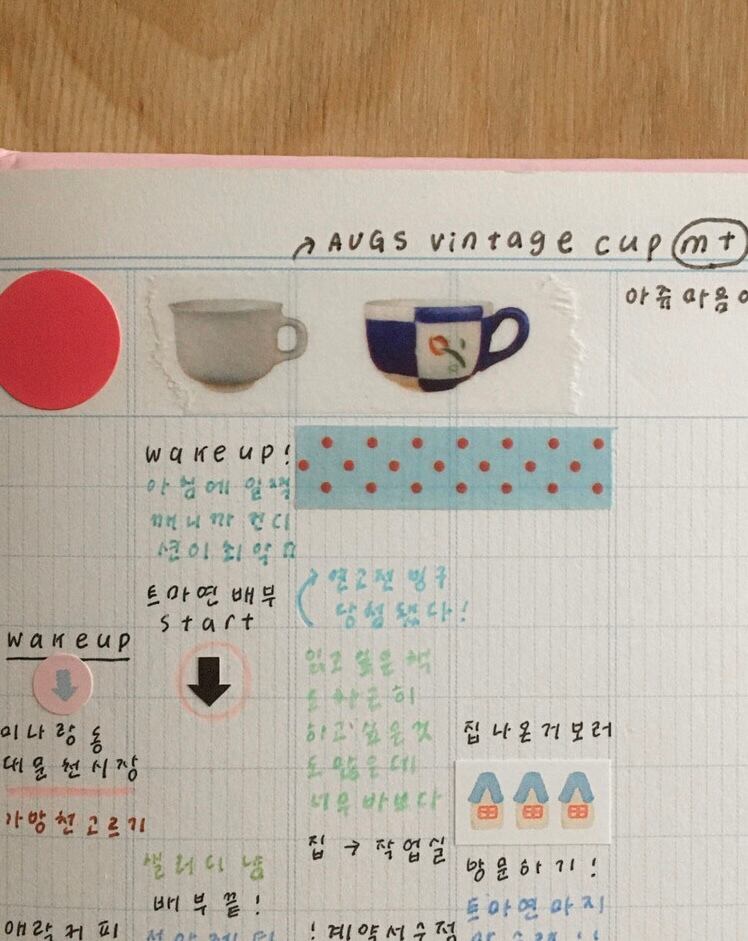 ↗ AUGS vintage cup mt
아쥬 마음
wakeup!
아침에 일찍
깨니까 컨디
션이 최악
트마연 배부
start
wakeup
미나랑 동
대문 천시장
가방천 고르기
샐러디 냠
배부 끝!
애락커피
연고전 빙구
당첨됐다!
읽고 싶은 책
도 차근히
하고 싶은 것
도 많은데
너무 바쁘다
집 → 작업실
! 계약서 수정
집 나온거 보러
방문하기!
트마연 마지